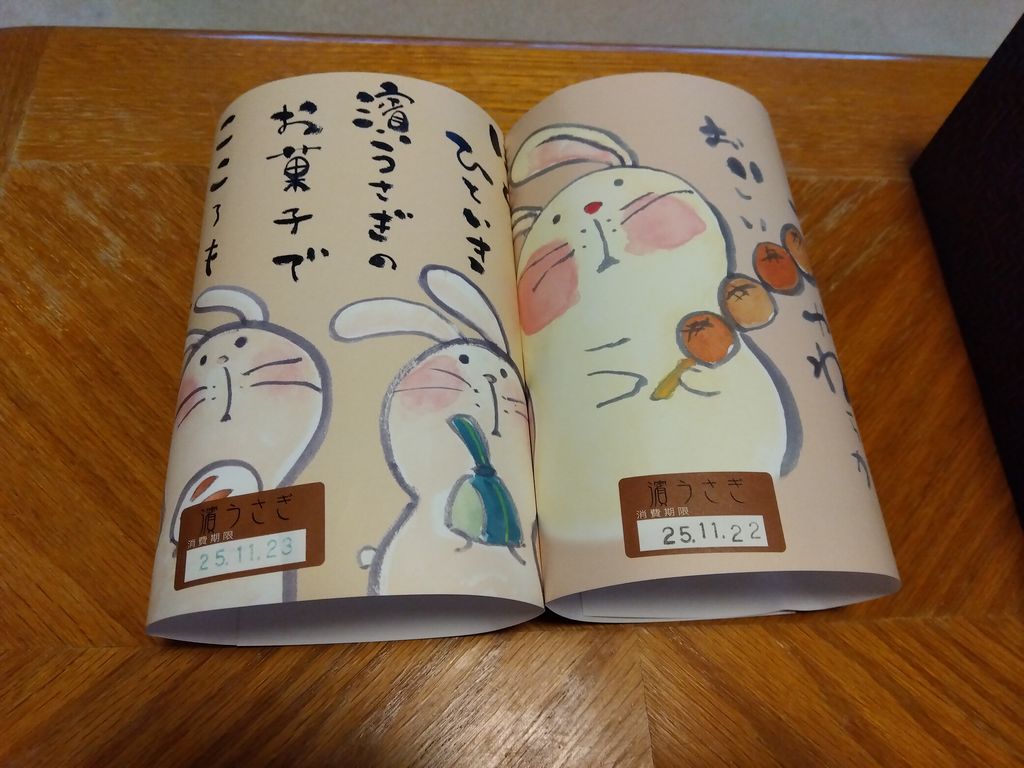 ひといき
濱うさぎの
お菓子で
こころも
濱うさぎ
消費期限
25.11.23
おいしい
濱うさぎ
消費期限
25.11.22